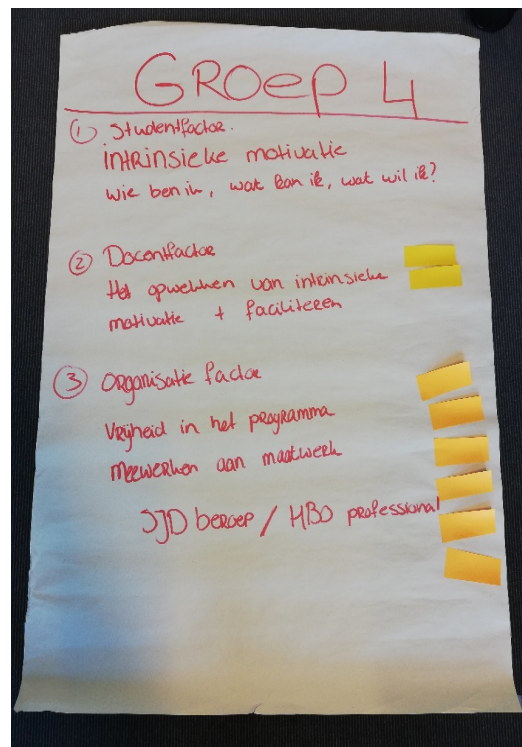 GROEP 4
① Studentfactor.
INTRINSIEKE motivatie
wie ben ik, wat kan ik, wat wil ik?
② Docentfactor
Het opwekken van intrinsieke
motivatie + faciliteren
③ ORganisatie factor
Vrijheid in het programma
Meewerken aan maatwerk
SJD beroep / HBO professional